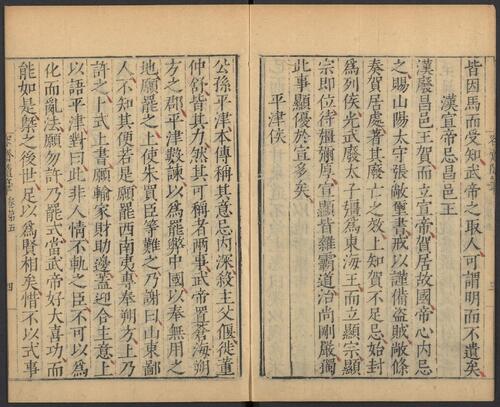 皆因馬而受知武帝之取人可謂明而不遺矣
漢宣帝忌昌邑王
漢廢昌邑王賀而立宣帝賀居故國帝心內忌
之賜山陽太守張敞璽書戒以謹備盜賊敞條
奏賀居處著其廢亡之效上知賀不足忌始封
爲列侯光武廢太子彊爲東海王而立顯宗顯
宗即位待彊彌厚宣顯皆雜霸道治尚剛嚴獨
此事顯優於宣多矣
平津侯
公孫平津本傳稱其意忌內深殺主父偃徙董
仲舒皆其力然其可稱者兩事武帝置蒼海朔
方之郡平津數諫以爲罷弊中國以奉無用之
地願罷之上使朱買臣等難之乃謝曰山東鄙
人不知其便若是願罷西南夷專奉朔方上乃
許之卜式上書願輸家財助邊蓋迎合主意上
以語平津對曰此非人情不軌之臣不可以爲
化而亂法願勿許乃罷式當武帝好大喜功而
能如是槩之後世足以爲賢相矣惜不以式事
容齋隨筆 卷第五
四